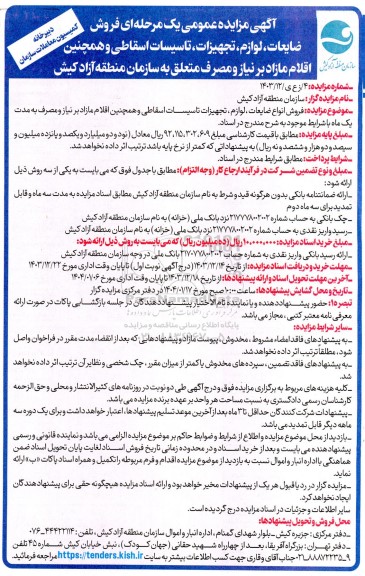 آگهی مزایده عمومی یک مرحله‌ای فروش
ضایعات، لوازم، تجهیزات، تاسیسات اسقاطی و همچنین
اقلام مازاد بر نیاز و مصرف متعلق به سازمان منطقه آزاد کیش
دبیرخانه
کمیسیون معاملات سازمان
سازمان منطقه آزاد کیش
-شماره مزایده: ۴/ز ع ی/۱۴۰۳/۱۲
-نام مزایده گزار: سازمان منطقه آزاد کیش
-موضوع مزایده: فروش انواع ضایعات، لوازم، تجهیزات تاسیسات اسقاطی و همچنین اقلام مازاد بر نیاز و مصرف به مدت
یک ماه با شرایط موجود به شرح مندرج در اسناد.
-مبلغ پایه مزایده: مطابق با قیمت کارشناسی مبلغ ۹۲,۱۱۵,۳۰۲,۶۰۹ ریال معادل (نود و دو میلیارد و یکصد و پانزده میلیون و
سیصد و دو هزار و ششصد و نه ریال) به پیشنهاداتی که کمتر از نرخ پایه باشد ترتیب اثر داده نخواهد شد.
-شرایط پرداخت: مطابق شرایط مندرج در اسناد.
-مبلغ و نوع تضمین شرکت در فرآیند ارجاع کار (وجه التزام): مطابق با جدول فوق که می‌بایست به یکی از سه روش ذیل
ارائه شود:
-ارائه ضمانتنامه بانکی بدون هرگونه قید و شرط به نام سازمان منطقه آزاد کیش مطابق اسناد مزایده به مدت سه ماه و قابل
تمدید برای سه ماه دوم
-چک بانکی به حساب شماره ۲۱۷۰۷۷۸۰۰۲۰۰۲ نزد بانک ملی (خزانه) به نام سازمان منطقه آزاد کیش
-رسید واریز نقدی به حساب شماره ۲۱۷۰۷۷۸۰۰۲۰۰۲ نزد بانک ملی (خزانه) به نام سازمان منطقه آزاد کیش
-مبلغ خرید اسناد مزایده: ۱۰,۰۰۰,۰۰۰ ریال (ده میلیون ریال) که می‌بایست به روش ذیل ارائه شود:
-ارائه رسید بانکی واریز نقدی به شماره حساب بانک ملی در وجه سازمان منطقه آزاد کیش
-مهلت خرید و دریافت اسناد مزایده: از تاریخ ۱۴۰۳/۱۲/۱۴ (درج آگهی نوبت اول) تا پایان وقت اداری مورخ ۱۴۰۳/۱۲/۲۲
-آخرین مهلت تحویل اسناد و ارائه پیشنهادها: از تاریخ تا پایان وقت اداری مورخ ۱۴۰۴/۰۱/۱۶
-تاریخ و محل گشایش پیشنهادها: ساعت ۱۰:۰۰ صبح مورخ ۱۴۰۴/۰۱/۱۷ در دفتر مرکزی مزایده گزار
تبصره ۱: حضور پیشنهاد دهنده و یا نماینده تام الاختیار پیشنهاد دهندگان در جلسه بازگشایی پاکات در صورت ارائه
معرفی نامه معتبر کتبی، مجاز می‌باشد.
-سایر شرایط مزایده:
-به پیشنهادهای فاقد امضاء، مشروط، مخدوش، پیوست مازاد و پیشنهادهایی که بعد از انقضاء مدت مقرر در فراخوان واصل
شود، مطلقا ترتیب اثر داده نخواهد شد.
-به پیشنهادهای فاقد تضمین، سپرده‌های مخدوش یا کمتر از میزان مقرر، چک شخصی و نظایر آن ترتیب اثر داده نخواهد
شد.
-کلیه هزینه‌های مربوط به برگزاری مزایده فوق و درج آگهی طی دو نوبت در روزنامه‌های کثیر الانتشار و محلی و حق الزحمه
کارشناسان رسمی دادگستری به نسبت مساحت هر واحد بر عهده برنده مزایده می‌باشد.
-پیشنهادات شرکت کنندگان حداقل تا ۳ ماه بعد از آخرین موعد تسلیم پیشنهادها، اعتبار خواهد داشت و برای یک دوره سه
ماهه دیگر قابل تمدید می‌باشد.
-بازدید از محل موضوع مزایده و اطلاع از شرایط و ضوابط حاکم بر موضوع مزایده الزامی می‌باشد و نماینده قانونی و رسمی
پیشنهاد دهنده می‌بایست و بعد از خرید اسناد و در محدوده زمانی تاریخ فروش اسناد لغایت پایان تحویل اسناد ضمن
هماهنگی با اداره انبار و اموال نسبت به بازدید از موضوع مزایده اقدام و فرم مربوطه را تکمیل و همراه اسناد پاکات «ب» ارائه
نماید.
-مزایده گزار در رد یا قبول هر یک از پیشنهادات مخیر خواهد بود و ارائه اسناد مزایده هیچگونه حقی برای پیشنهاد دهندگان
ایجاد نخواهد کرد.
سایر اطلاعات و جزئیات در اسناد مزایده درج گردیده است.
محل فروش و تحویل پیشنهادها:
-دفتر مرکزی: جزیره کیش - بلوار شهدای گمنام، اداره انبار و اموال سازمان منطقه آزاد کیش، تلفن: ۴۴۴۲۳۱۱۴-۰۷۶
-دفتر تهران: بزرگراه آفریقا، بعد از چهارراه شهید حقانی (جهان کودک)، نبش خیابان کیش شماره ۴۵ تلفن
۹-۸۸۸۷۲۲۳۵-۰۲۱ جناب آقای وفاری جهت کسب اطلاعات بیشتر به سایت https://tenders.kish.ir مراجعه فرمائید.